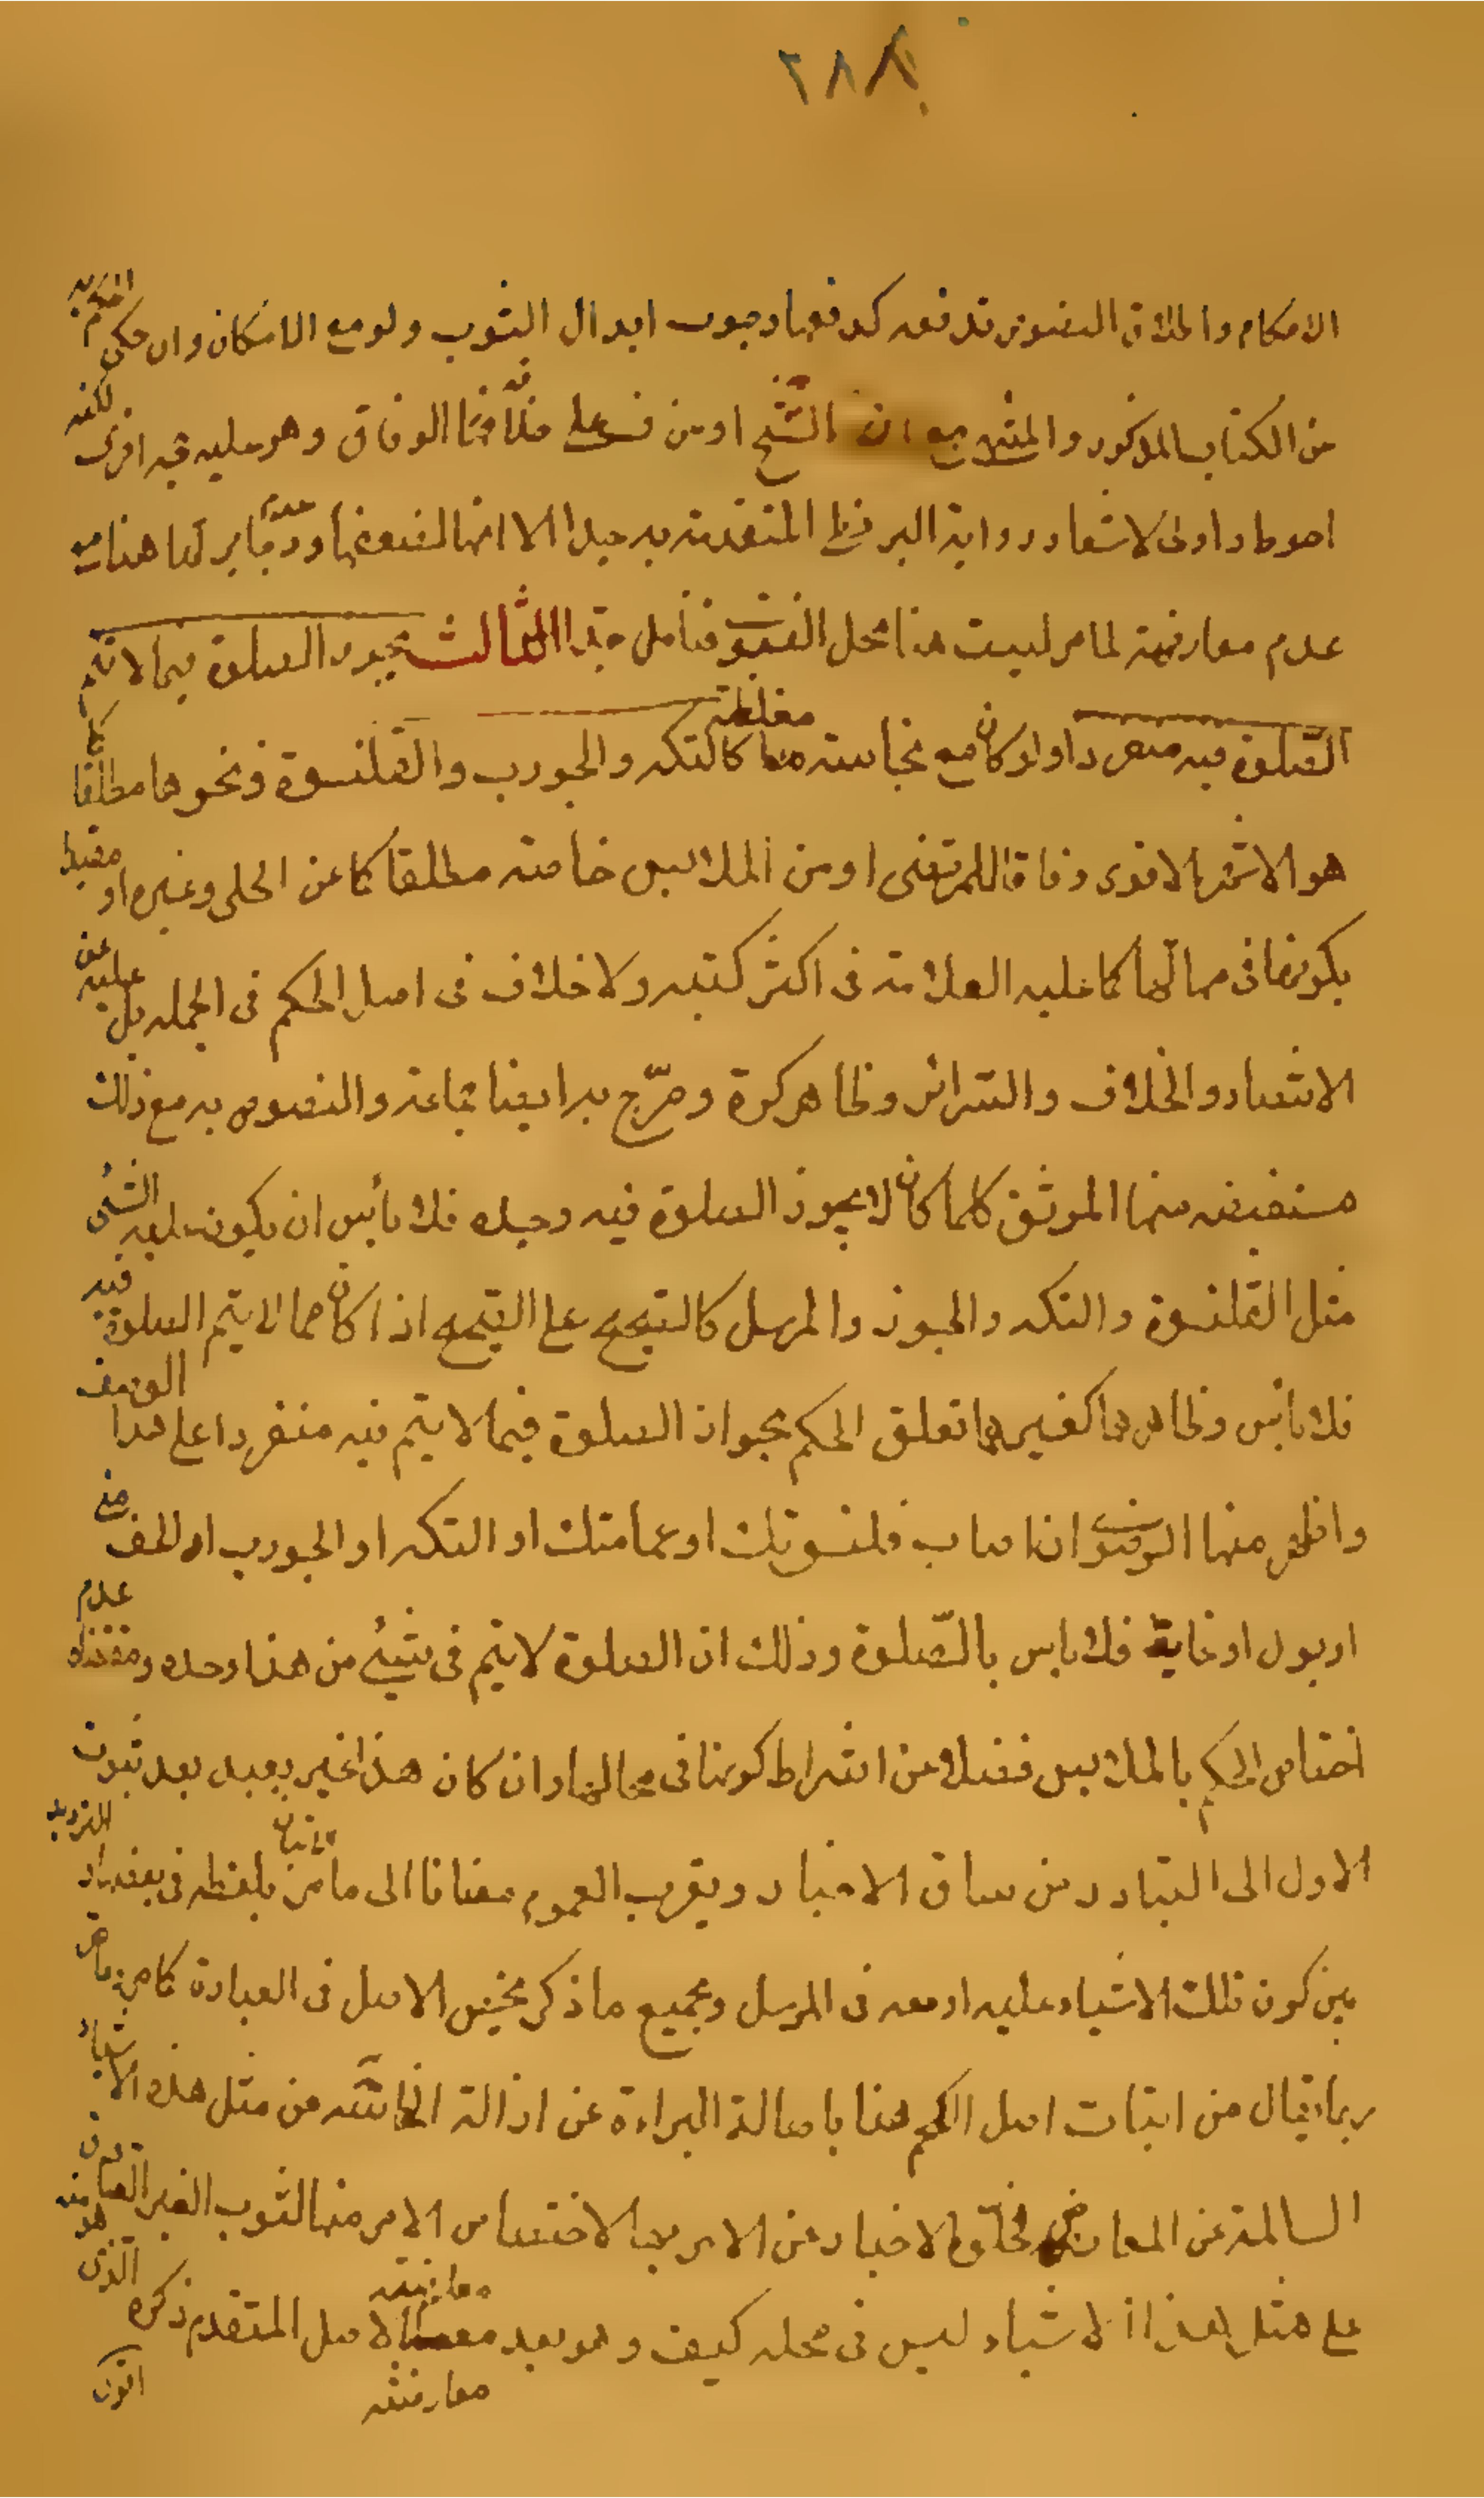 ٢٨٨
الاحكام واطلاق النصوص تدفعه كدفعها وجوب ابدال الثوب ولو مع الامكان وان حكى القول به
من الكتاب المذكور والمنتهى مع ان الشيخ او من فى على خلافنا الوفاق وهو عليه فيه اخرى لكنه
احوط واولى لاشعار رواية البزنطى المتقدمة به جدا الا انها لضعفها وعدم جابر لها هنا مع
عدم معارضة لما مر ليست هنا محل الفتوى فتأمل جدا الثالث تجوز الصلوة فيما لا تتم
الصلوة فيه منفردا ولو كان مع نجاسته مغلظة كالتكه والجورب والقلنسوة ونحوها مطلقا كما
هو الاشهر الاقوى وفاقا للمرتضى او من الملابس خاصة مطلقا كما عن الحلى وغيره او مقيدا
بكونها فى محالها كما عليه العلامة فى اكثر كتبه ولا خلاف فى اصل الحكم فى الجمله بل عليه عن
الانتصار والخلاف والسرائر وظاهر كرة وصرّح به ايضا جماعة والنصوص به مع ذلك
مستفيضه منها الموثق كلما كان لا يجوز الصلوة فيه وحده فلا بأس ان يكون عليه الشئى
مثل القلنسوة والتكه والجورب والمرسل كالصحيح على الصحيح اذا كان مما لا يتم الصلوة فيه
فلا بأس وظاهرهما كغيرهما تعلق الحكم بجواز الصلوة فيما لا يتم فيه منفردا على هذا الوصف
واظهر منها الرضوى ان اصاب قلنسوتك او عمامتك او التكه او الجورب او الخف منى
او بول او غايط فلا باس بالصّلوة وذلك ان الصلوة لا يتم فى شئى من هذا وحده ومقتضاه عدم
اختصاص الحكم بالملابس فضلا عن اشتراط كونها فى محالها وان كان هذا خير بعيد بعد ثبوت
الاول الى التبادر من سياق الاخبار ويقرب العموم مضافا الى ما مرّ بلفظه فى بعضها للترديد
بين كون تلك الاشياء عليه او معه فى المرسل وبجميع ما ذكر يخص الاصل فى العبادة كما مر ما مر
ربما يقال من اثبات اصل الحكم هنا باصالة البراءة عن ازالة النجاسة من مثل هذه الاشياء
السالمة عن المعارض لخلو الاخبار عن الامر بها لاختصاص الامر منها بالثوب الغير الصادق
على مثل هذا الاشياء ليس فى محله كيف وهو بعد معارضته الاصل المتقدم ذكره الذى هو
معارضته
اقوى